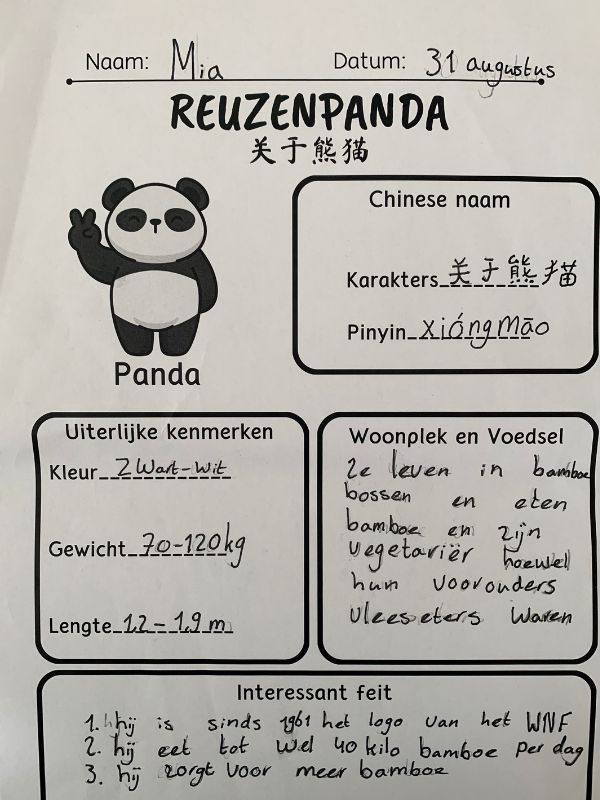 Naam: Mia Datum: 31 augustus
REUZENPANDA
关于熊猫
Panda
Chinese naam
Karakters 关于熊猫
Pinyin xióngmāo
Uiterlijke kenmerken
Kleur Zwart-wit
Gewicht 70-120kg
Lengte 1,2 - 1,9 m
Woonplek en Voedsel
Ze leven in bamboe
bossen en eten
bamboe en zijn
vegetariër hoewel
hun voorouders
vleeseters waren
Interessant feit
1. hij is sinds 1961 het logo van het WNF
2. hij eet tot wel 40 kilo bamboe per dag
3. hij zorgt voor meer bamboe